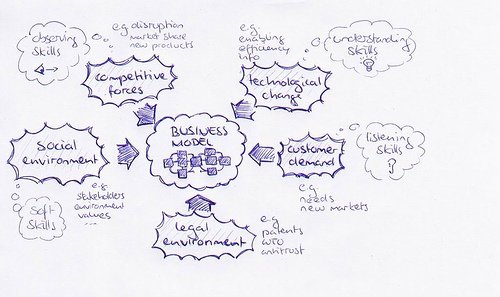 observing
skills
e.g. disruption
market share
new products
competitive
forces
e.g.
enabling
efficiency
info
understanding
skills
technological
change
BUSINESS
MODEL
social
environment
customer
demand
listening
skills
e.g.
stakeholders
environment
values
...
soft
skills
legal
environment
e.g.
patents
WTO
antitrust
e.g.
needs
new markets